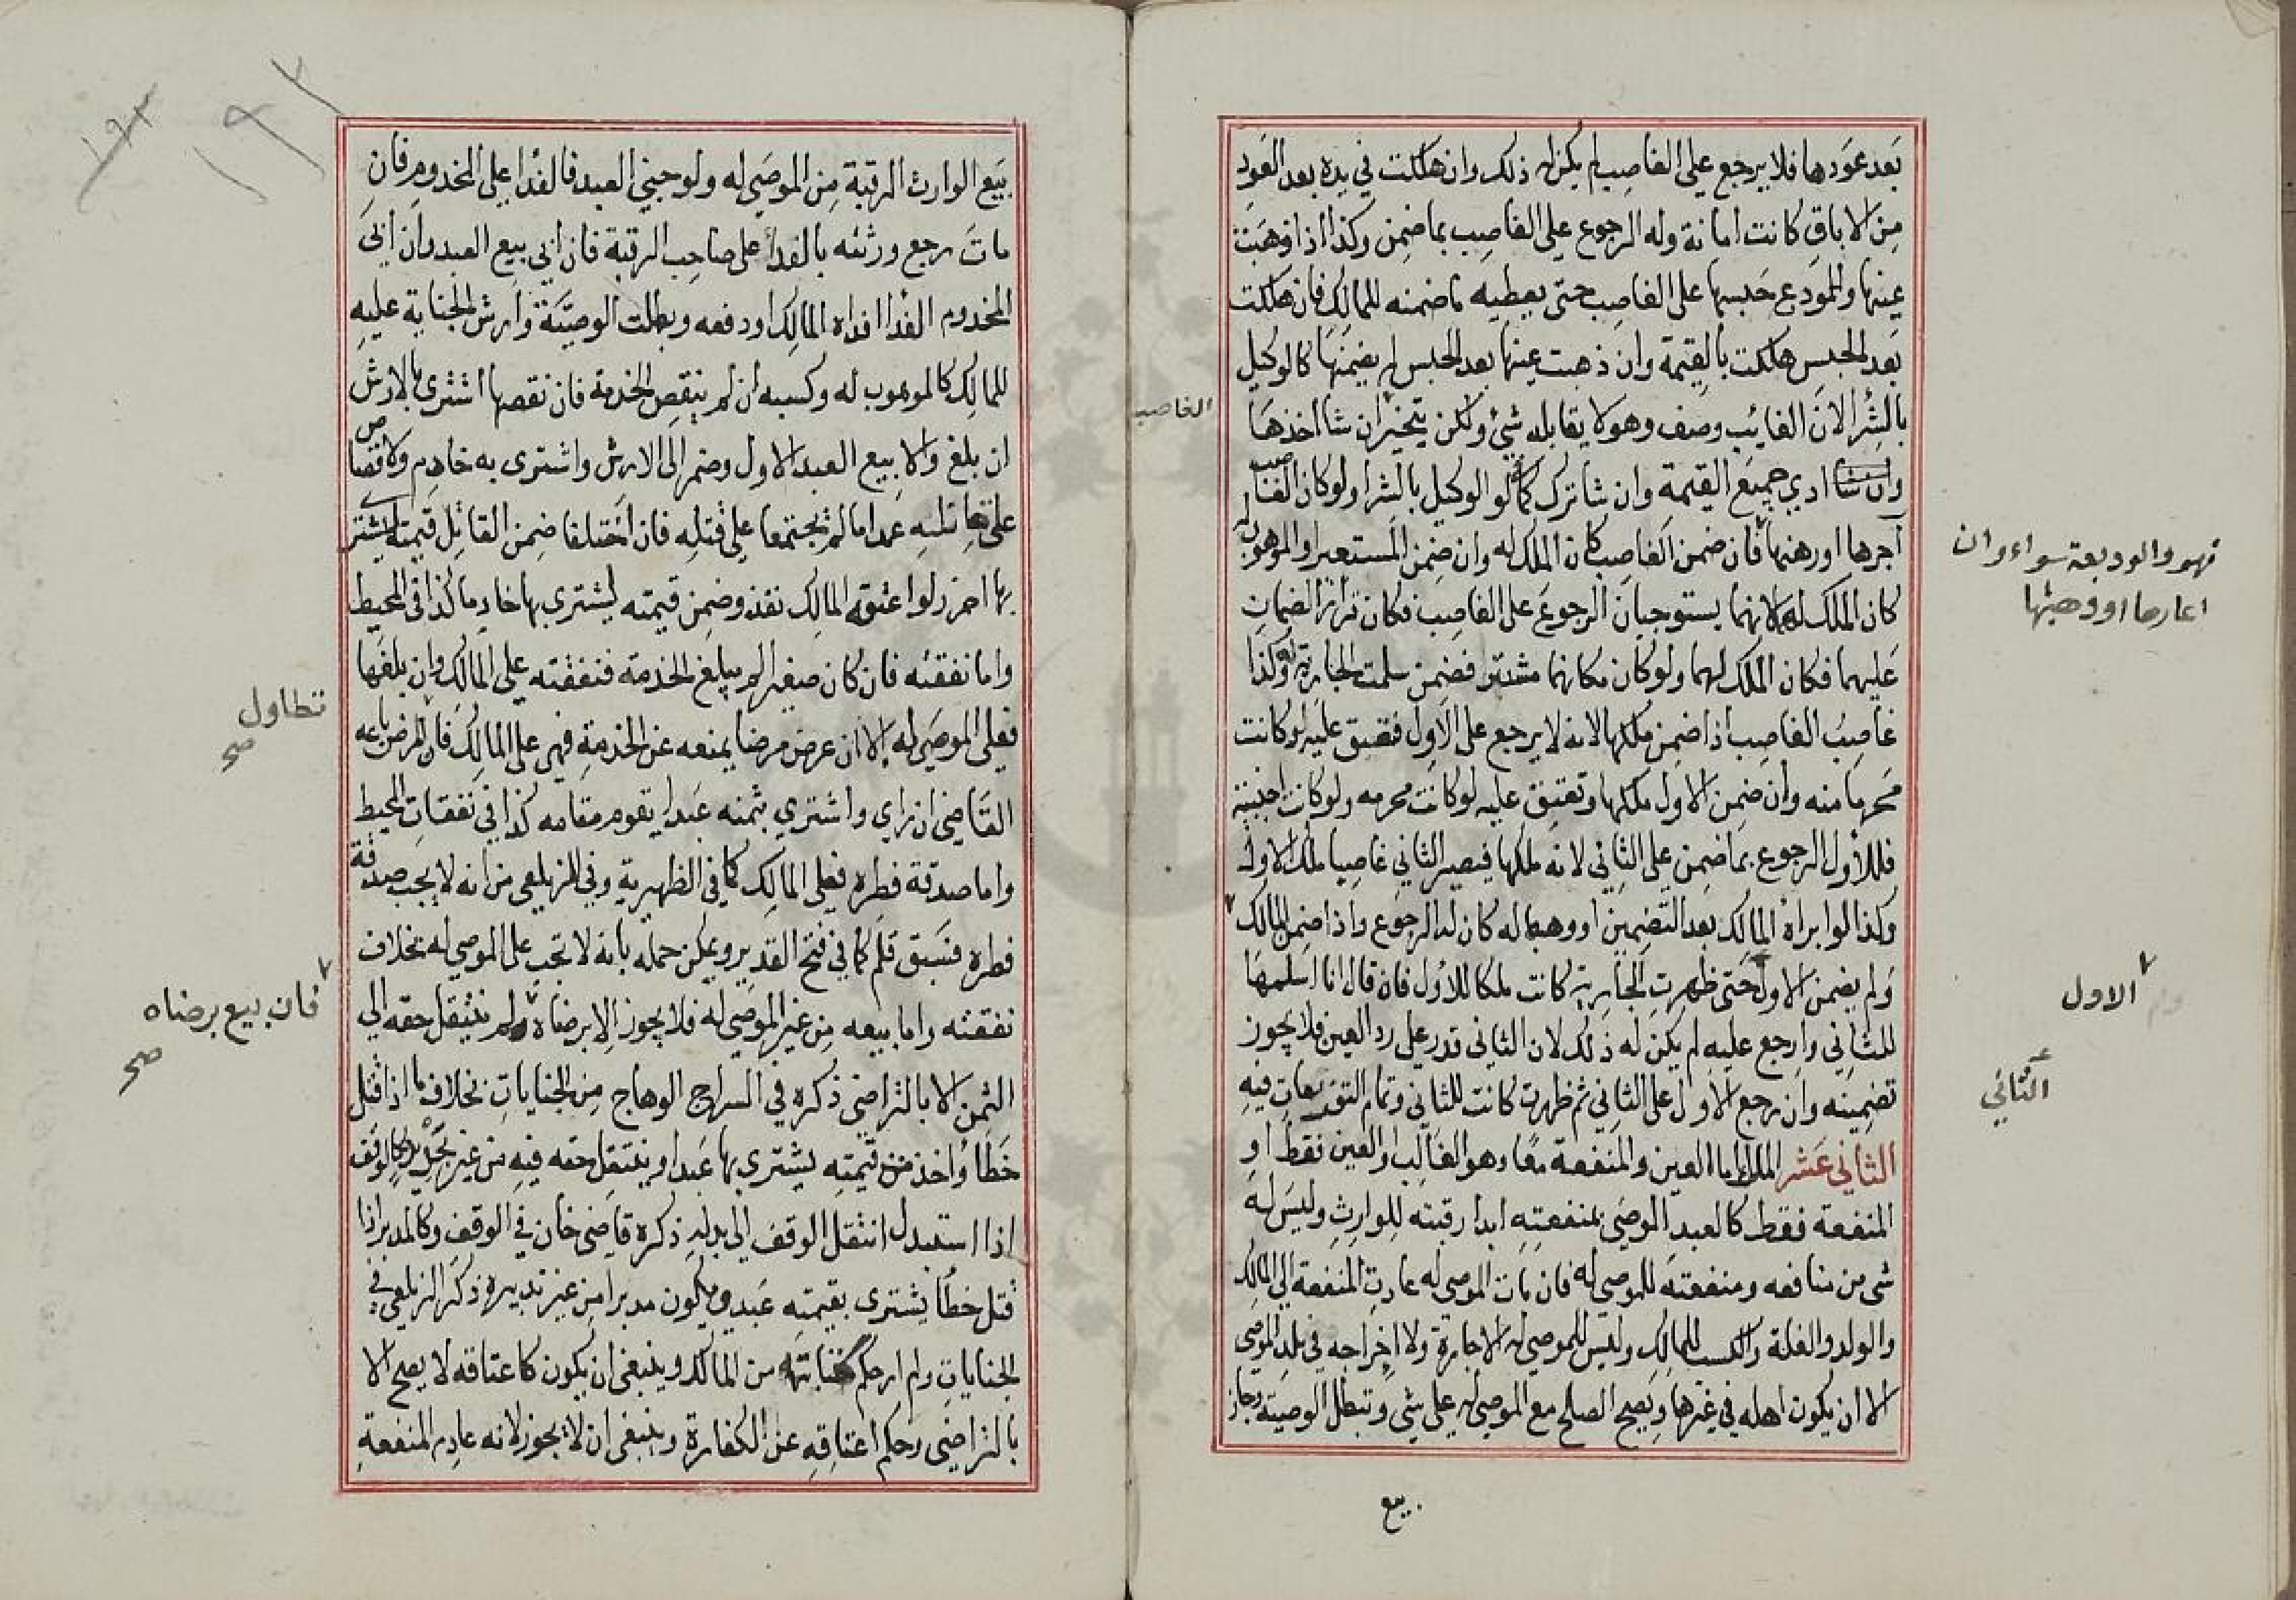 بعد عودها فلا يرجع على الغاصب لم يكن له ذلك وان هلكت في يده بعد العود
من الاباق كانت امانة وله الرجوع على الغاصب بما ضمن وكذا اذا ذهبت
عينها وللمودع حبسها على الغاصب حتى يعطيه ما ضمنه للمالك فان هلكت
بعد الحبس هلكت بالقيمة وان ذهبت عينها بعد الحبس لم يضمنها كالوكيل
بالشرا لان الفايت وصف وهو لا يقابله شئ ولكن يتخير ان شا اخذها
وان شا ادي جميع القيمة وان شا ترك كما لو الوكيل بالشرا ولو كان الغاصب
آجرها او رهنها فان ضمن الغاصب كان الملك له وان ضمن المستعير او الموهوب له
كان الملك له لانهما يستوجبان الرجوع على الغاصب فكان قرار الضمان
عليهما فكان الملك لهما ولو كان مكانهما مشتر فضمن سلمت الجارية له وكذا
غاصب الغاصب اذا ضمن ملكها لانه لا يرجع على الاول فتعتق عليه لو كانت
محرما منه وان ضمن الاول ملكها وتعتق عليه لو كانت محرمه ولو كانت اجنبية
فللاول الرجوع بما ضمن على الثاني لانه ملكها فيصير الثاني غاصبا ملك الاول
وكذا لو ابراه المالك بعد التضمين او وهبها له كان له الرجوع واذا ضمن المالك
ولم يضمن الاول حتى ظهرت الجارية كانت ملكا للاول فان قال انا اسلمها
للثاني وارجع عليه لم يكن له ذلك لان الثاني قدر على رد العين فلا يجوز
تضمينه وان رجع الاول على الثاني ثم ظهرت كانت للثاني وتمام التفريعات فيه
الثاني عشر الملك اما للعين والمنفعة معا وهو الغالب او للعين فقط او
المنفعة فقط كالعبد الموصى بمنفعته ابدا رقبته للوارث وليس له
شئ من منافعه ومنفعته للموصى له فان مات الموصى له عادت المنفعة الى المالك
والولد والغلة والكسب للمالك وليس للموصى له الاجارة ولا اخراجه في بلد الموصى
الا ان يكون اهله في غيرها ويصح الصلح مع الموصى له على شئ وتبطل الوصية وجاز
بيع
الغاصب
فهو والوديعة سواء وان
اعارها او وهبها
الاول
الثاني
١٩٢
بيع الوارث الرقبة من الموصى له ولو جنى العبد فالفدا على المخدوم فان
مات رجع ورثته بالفدا على صاحب الرقبة فان ابى بيع العبد وان ابى
المخدوم الفدا افداه المالك او دفعه وبطلت الوصية وارش الجناية عليه
للمالك كالموهوب له وكسبه ان لم ينقص الخدمة فان نقصها اشترى بالارش
ان بلغ والا بيع العبد الاول وضم الى الارش واشترى به خادم ولا قصاص
على قاتله عمدا ما لم يجتمعا على قتله فان اختلفا ضمن القاتل قيمته يشتر
بها اخر ولو اعتقه المالك نفذ وضمن قيمته ليشترى بها خادما كذا في المحيط
واما نفقته فان كان صغيرا لم يبلغ الخدمة فنفقته على المالك وان بلغها
فعلى الموصى له الا ان عرض مرضا يمنعه عن الخدمة فهي على المالك فان المرض باعه
القاضي ان راى واشتري بثمنه عبدا يقوم مقامه كذا في نفقات المحيط
واما صدقة فطره فعلى المالك كما في الظهيرية وفي الزيلعي من انه لا يجب صدقة
فطره فسبق قلم كما في فتح القدير ويمكن حمله بانه لا تجب على الموصى له بخلاف
نفقته واما بيعه من غير الموصى له فلا يجوز الا برضاه ولم ينتقل حقه الى
الثمن الا بالتراضى ذكره في السراج الوهاج من الجنايات بخلاف ما اذا قتل
خطأ واخذت قيمته يشترى بها عبد او ينتقل حقه فيه من غير تجديد كالوقف
اذا استبدل انتقل الوقف الى بدله ذكره قاضي خان في الوقف وكالمدبر اذا
قتل خطأ يشترى بقيمته عبد ويكون مدبرا من غير تدبيره ذكره الزيلعي في
الجنايات ولم ار حكم كتابته من المالك وينبغي ان يكون كاعتاقه لا يصح الا
بالتراضى وحكم اعتاقه عن الكفارة وينبغي ان لا يجوز لانه عادم المنفعة
تطاول
صح
فان بيع برضاه
صح